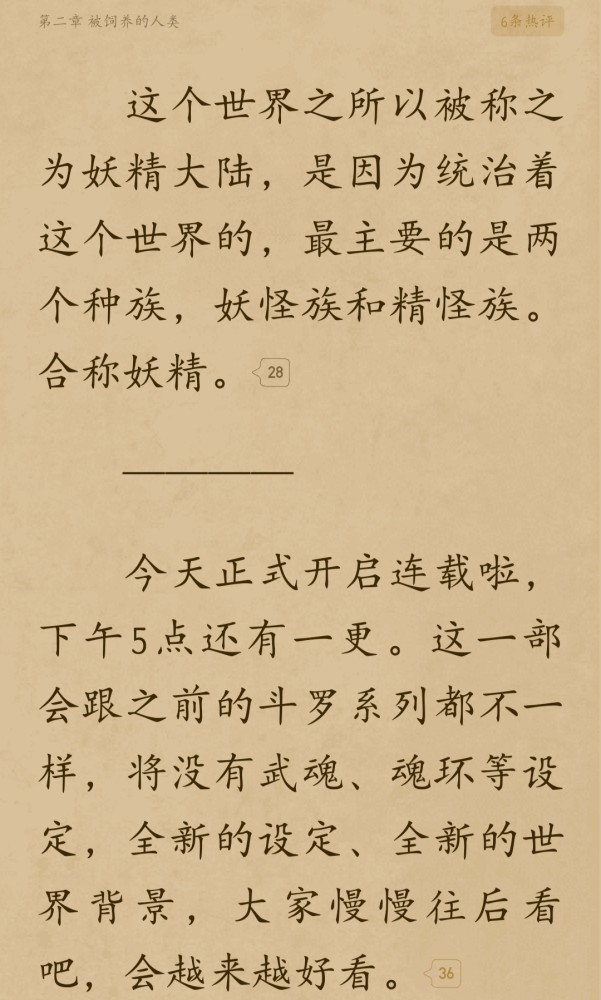 第二章 被饲养的人类
6条热评
这个世界之所以被称之
为妖精大陆，是因为统治着
这个世界的，最主要的是两
个种族，妖怪族和精怪族。
合称妖精。 28
今天正式开启连载啦，
下午5点还有一更。这一部
会跟之前的斗罗系列都不一
样，将没有武魂、魂环等设
定，全新的设定、全新的世
界背景，大家慢慢往后看
吧，会越来越好看。 36